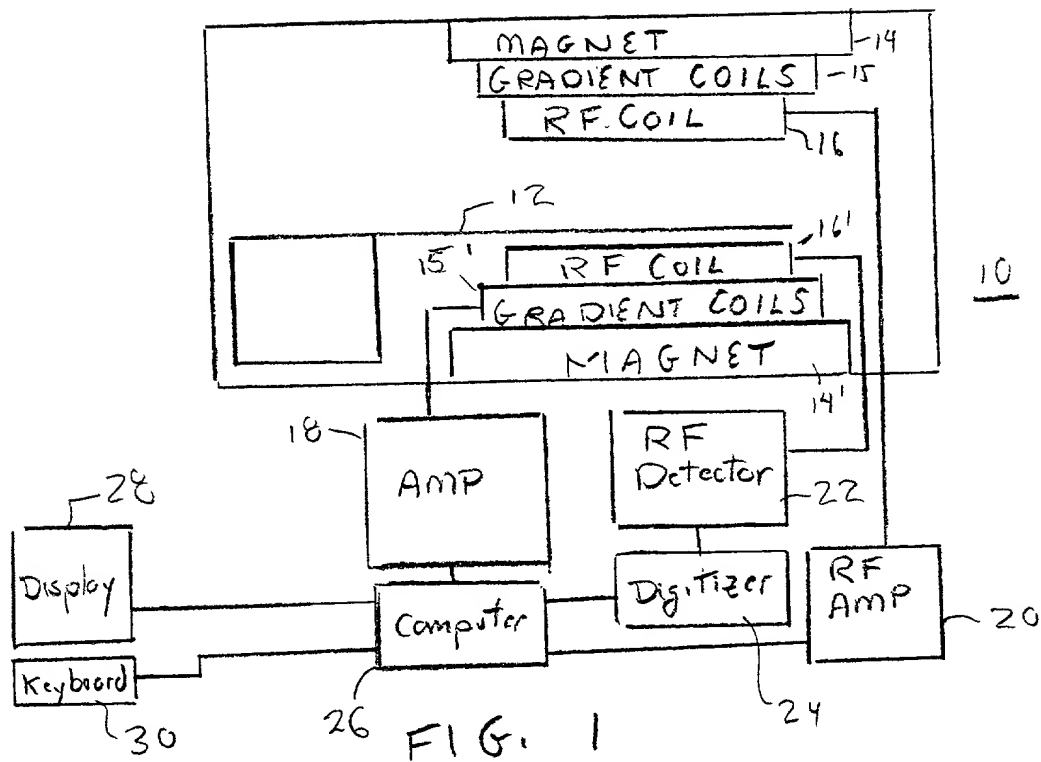 MAGNET
14
GRADIENT COILS
15
RF. COIL
16
12
16'
15'
RF COIL
GRADIENT COILS
10
MAGNET
14'
18
AMP
RF
Detector
22
28
Display
Computer
Digitizer
RF
AMP
20
Keyboard
30
26
24
FIG. 1